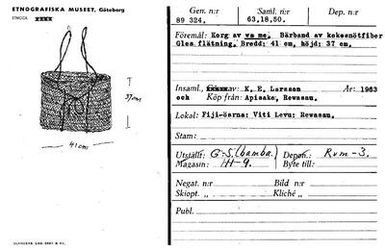 ETNOGRAFISKA MUSEET, Göteborg
37cm
41cm
Gen. n:r
89 324.
Saml. n:r
63,18,50.
Dep. n:r
Föremål: Korg av va me. Bärband av kokosnötfiber
Gles flätning. Bredd: 41 cm, höjd: 37 cm.
Insaml. av: K. E. Larsson År: 1963
och Köp från: Apisake, Rewasau.
Lokal: Fiji-öarna: Viti Levu: Rewasau.
Stam:
Utställt: G-S. (bamba.) Depon.: Rum-3.
Magasin: H-9. Byte till:
Negat. n:r Bild n:r
Skiopt. „ Kliché „
Publ.